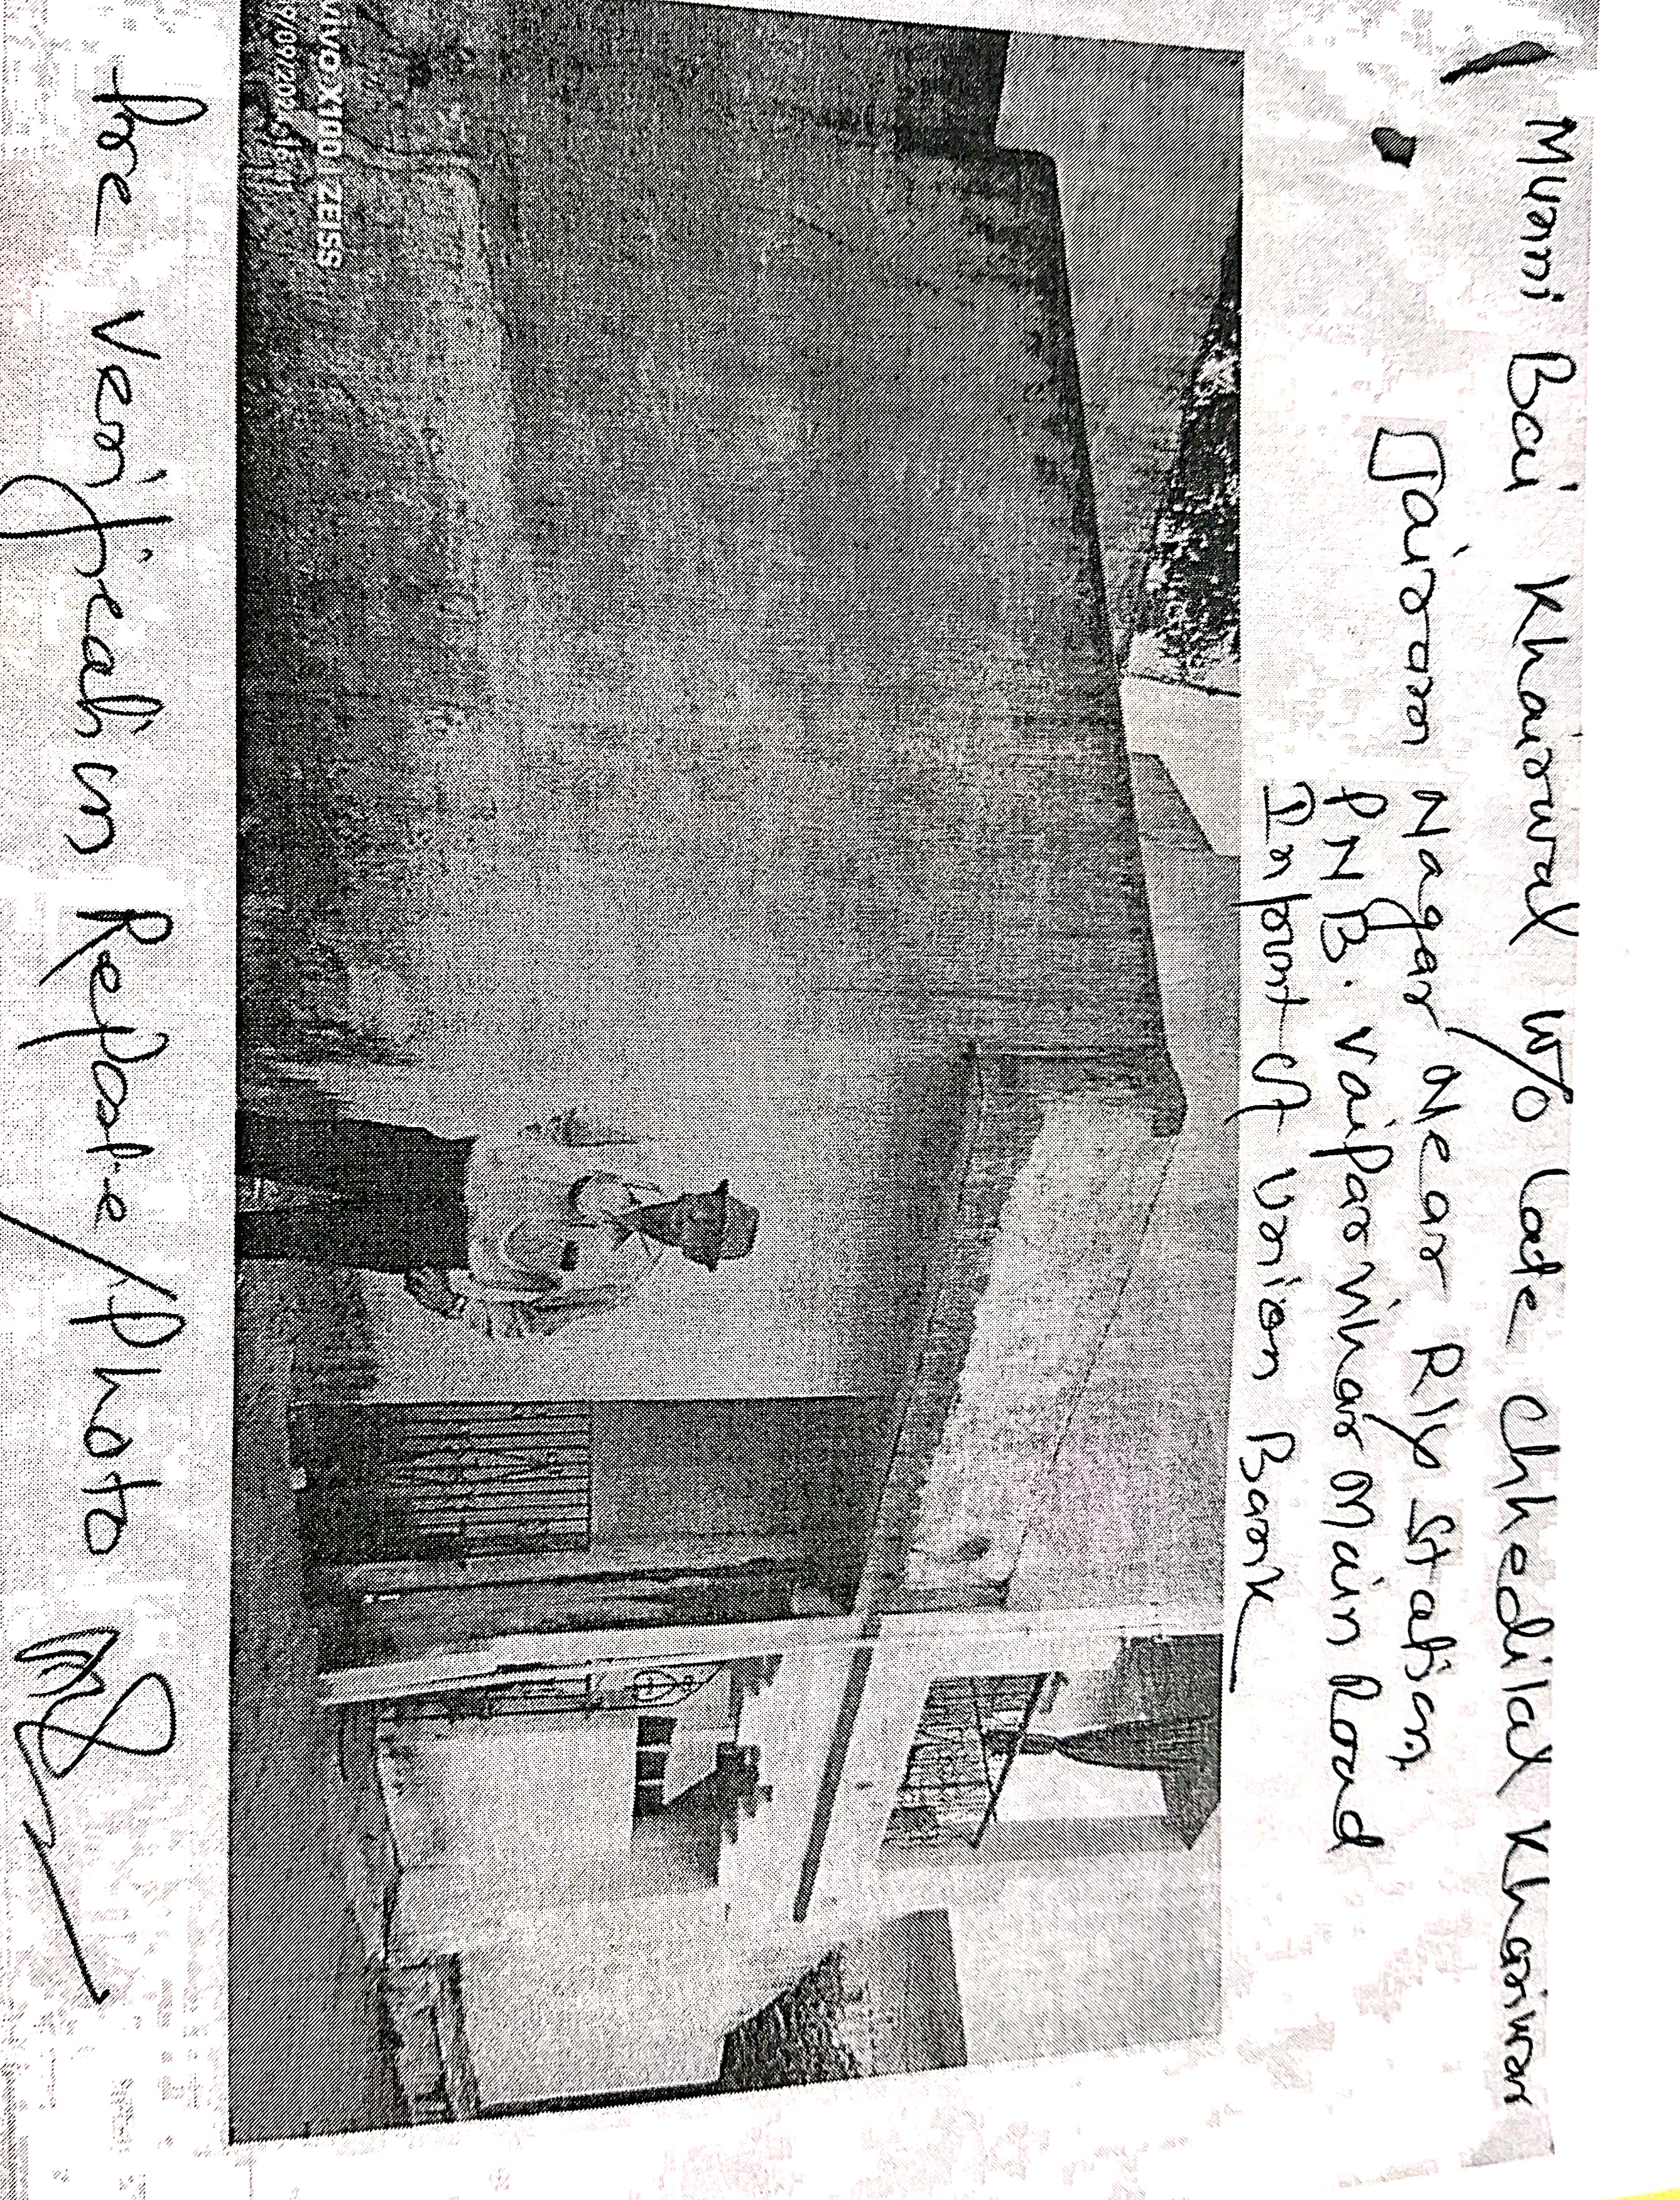 Munni Bai Khairwal W/o Late Chhedilal Khariwar
Jairam Nagar Near Rly Station
PNB. Vaipar Vihar Main Road
Infount of Union Bank
vivo X100 | ZEISS
Pre Verification Report/Photo